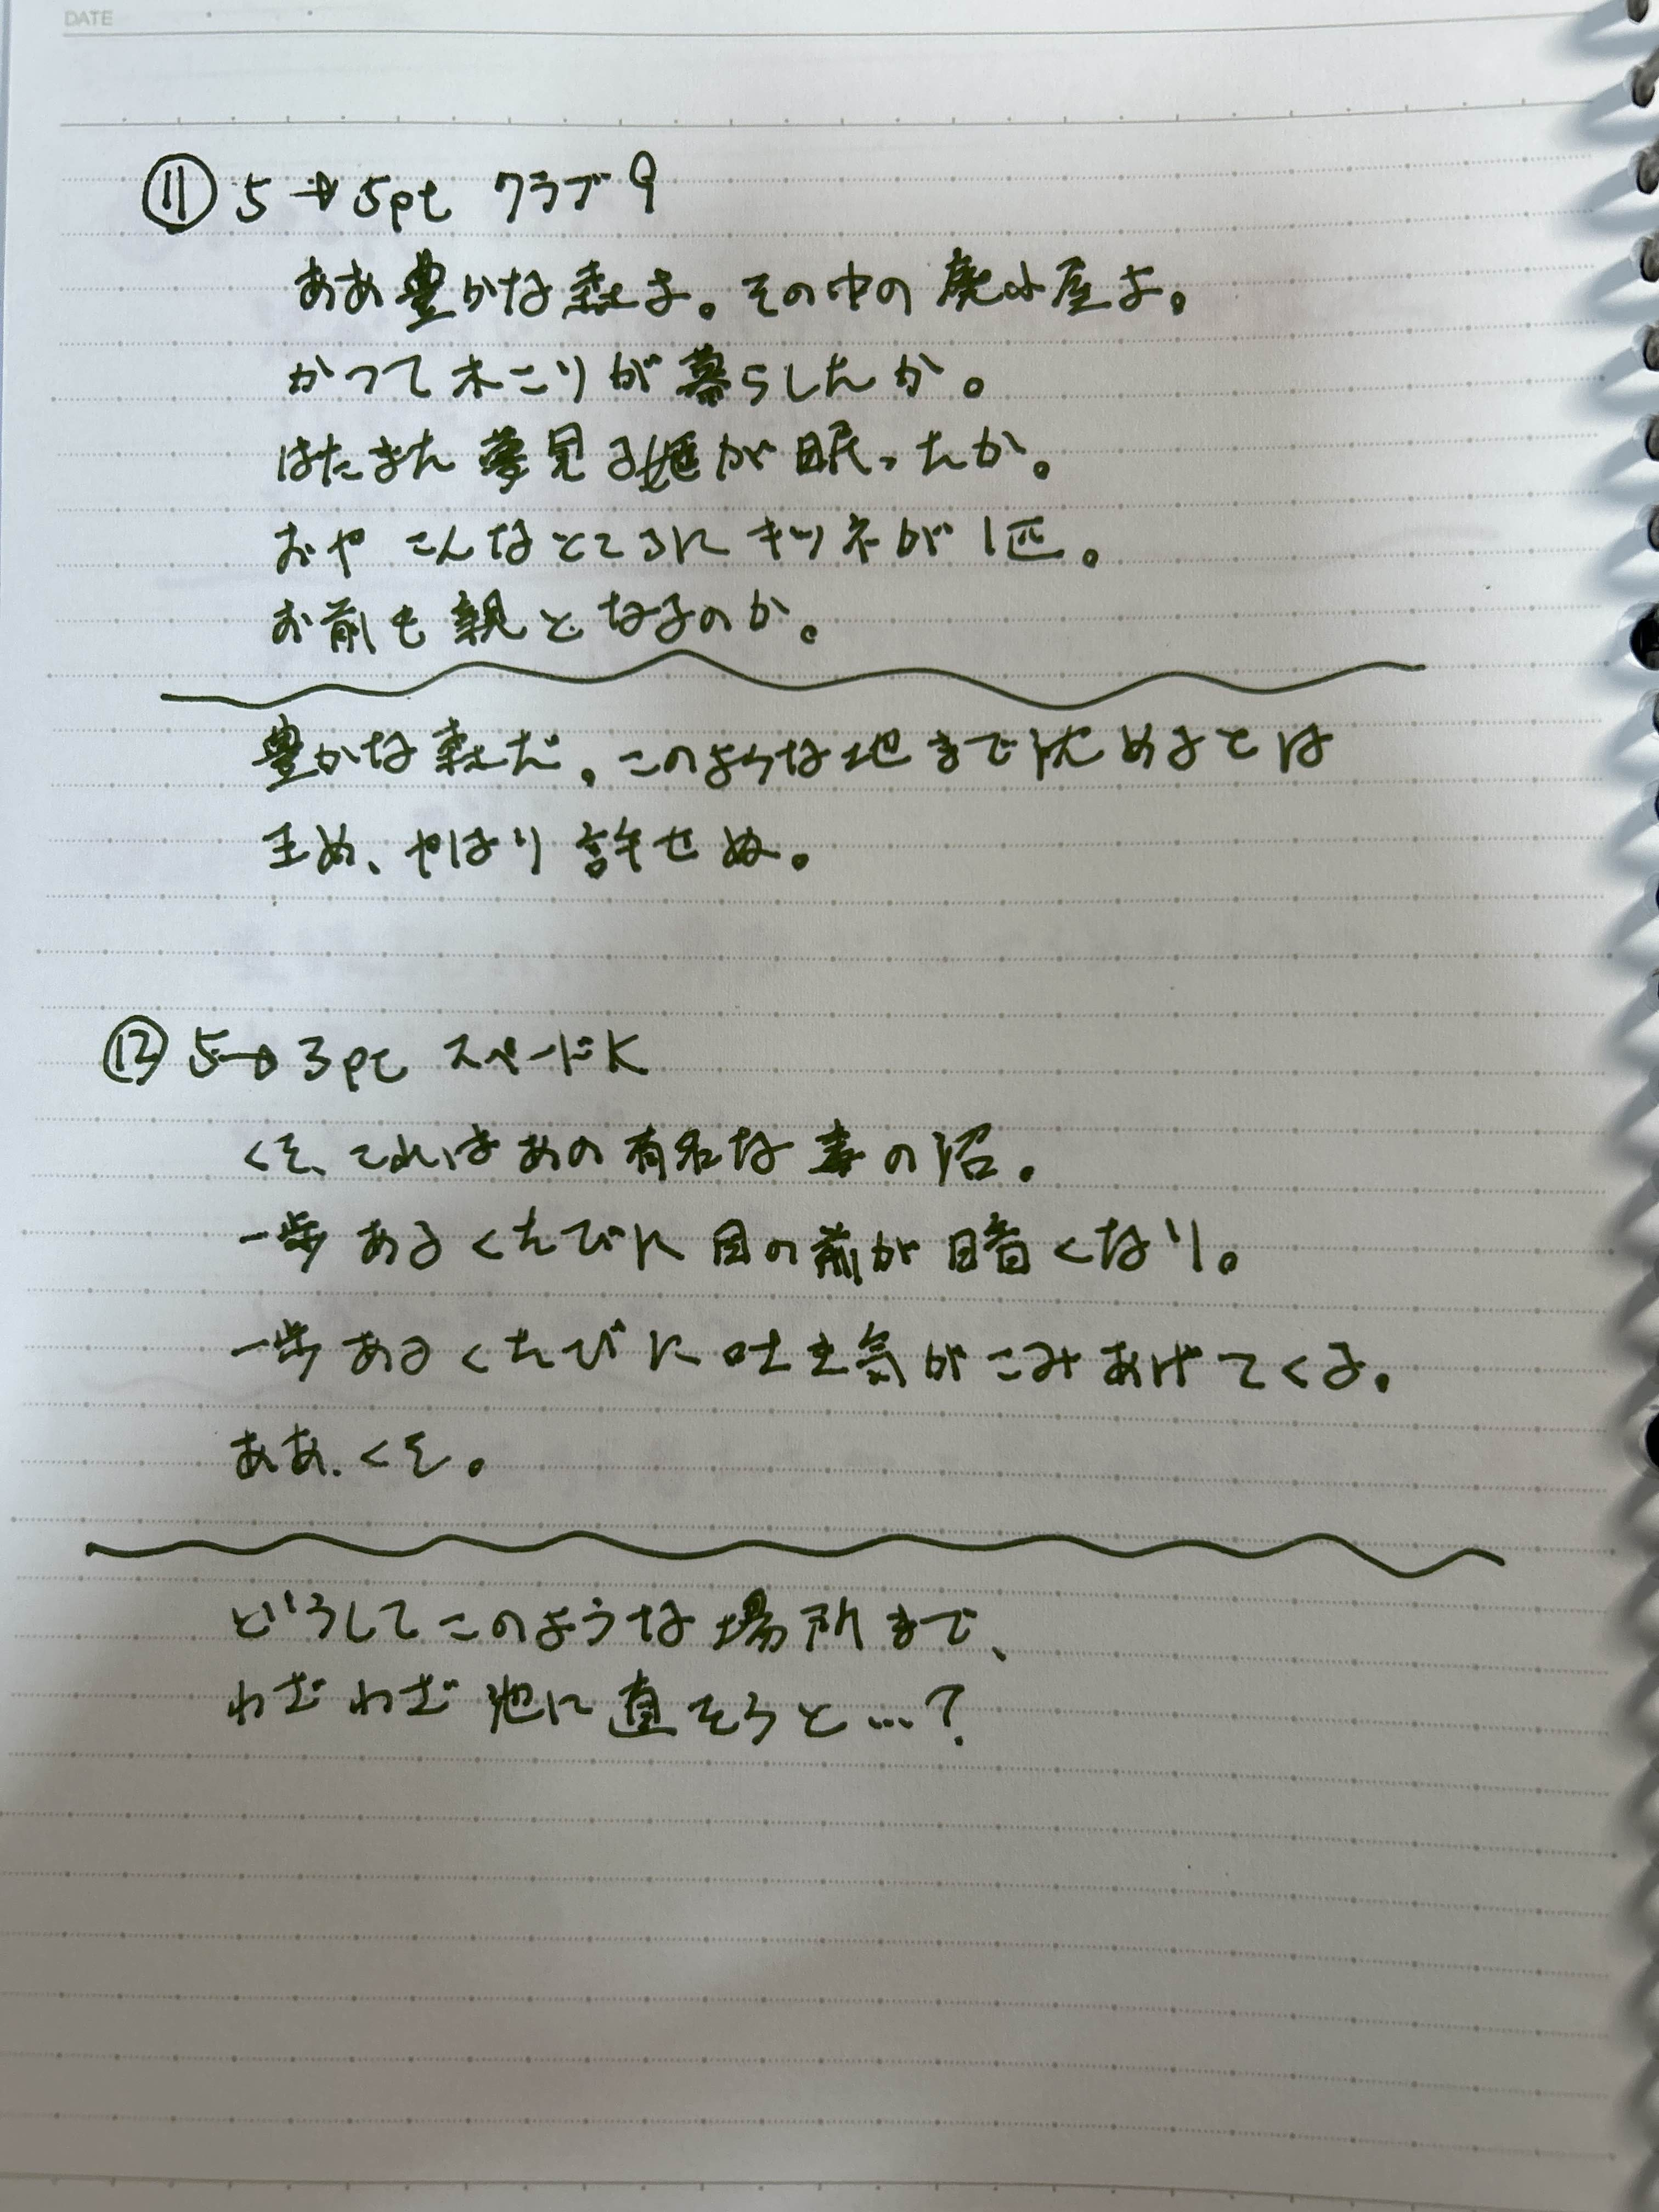 DATE
⑪ 5→5pt クラブ9
ああ豊かな森よ。その中の廃小屋よ。
かつて木こりが暮らしたか。
はたまた夢見る姫が眠ったか。
おや こんなところにキツネが1匹。
お前も親となるのか。
豊かな森だ。このような地まで沈めるとは
王め、やはり許せぬ。
⑫ 5→3pt スペードK
くそ、これはあの有名な毒の沼。
一歩あるくたびに目の前が暗くなり。
一歩あるくたびに吐き気がこみあげてくる。
ああ、くそ。
どうしてこのような場所まで、
わざわざ池に直そうと…?